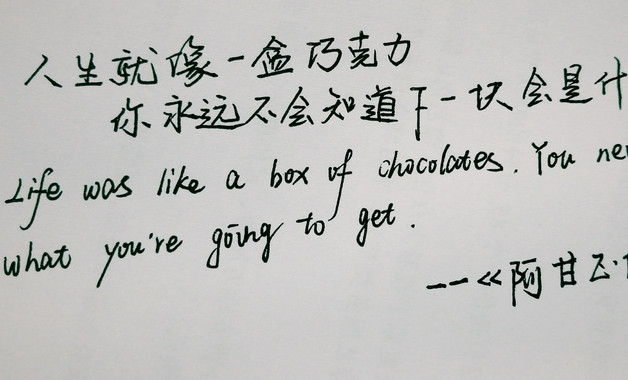 人生就像一盒巧克力
你永远不会知道下一块会是什
Life was like a box of chocolates. You ne
what you're going to get.
——《阿甘正·